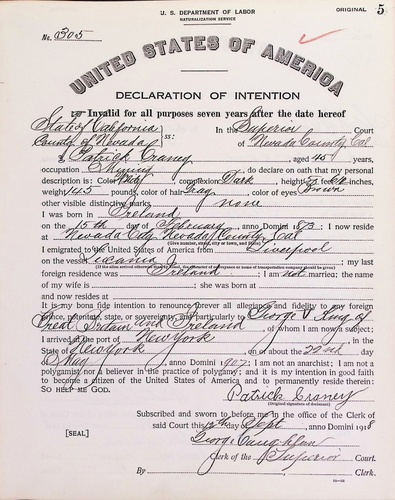 U. S. DEPARTMENT OF LABOR
NATURALIZATION SERVICE
ORIGINAL 5
No. 2305
UNITED STATES OF AMERICA
DECLARATION OF INTENTION
Invalid for all purposes seven years after the date hereof
State of California
County of Nevada ss: In the Superior Court
of Nevada County, Cal
I, Patrick Craney, aged 45 years,
occupation Mining, do declare on oath that my personal
description is: Color White, complexion Dark, height 5 feet inches,
weight 145 pounds, color of hair Gray, color of eyes Brown
other visible distinctive marks none
I was born in Ireland
on the 15th day of February, anno Domini 1873; I now reside
at Nevada City Nevada County Cal.
(Give number, street, city or town, and State.)
I emigrated to the United States of America from Liverpool
on the vessel; my last
(If the alien arrived otherwise than by vessel, the character of conveyance or name of transportation company should be given.)
foreign residence was Ireland; I am not married; the name
of my wife is; she was born at
and now resides at
It is my bona fide intention to renounce forever all allegiance and fidelity to any foreign
prince, potentate, state, or sovereignty, and particularly to George V King of
Great Britain and Ireland, of whom I am now a subject;
I arrived at the port of New York, in the
State of New York, on or about the 22nd day
of May, anno Domini 1907; I am not an anarchist; I am not a
polygamist nor a believer in the practice of polygamy; and it is my intention in good faith
to become a citizen of the United States of America and to permanently reside therein:
SO HELP ME GOD.
Patrick Craney
(Original signature of declarant.)
Subscribed and sworn to before me in the office of the Clerk of
[SEAL] said Court this 12th day of Sept, anno Domini 1918
George
Clerk of the Superior Court.
By, Clerk.